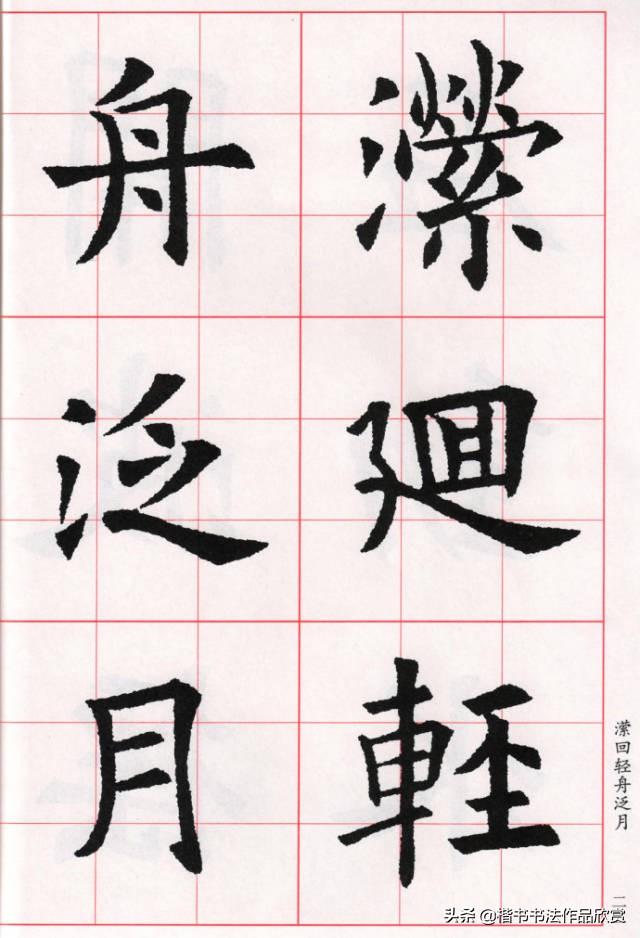 瀠廻輕
舟泛月
潆回轻舟泛月
头条 @楷书书法作品欣赏